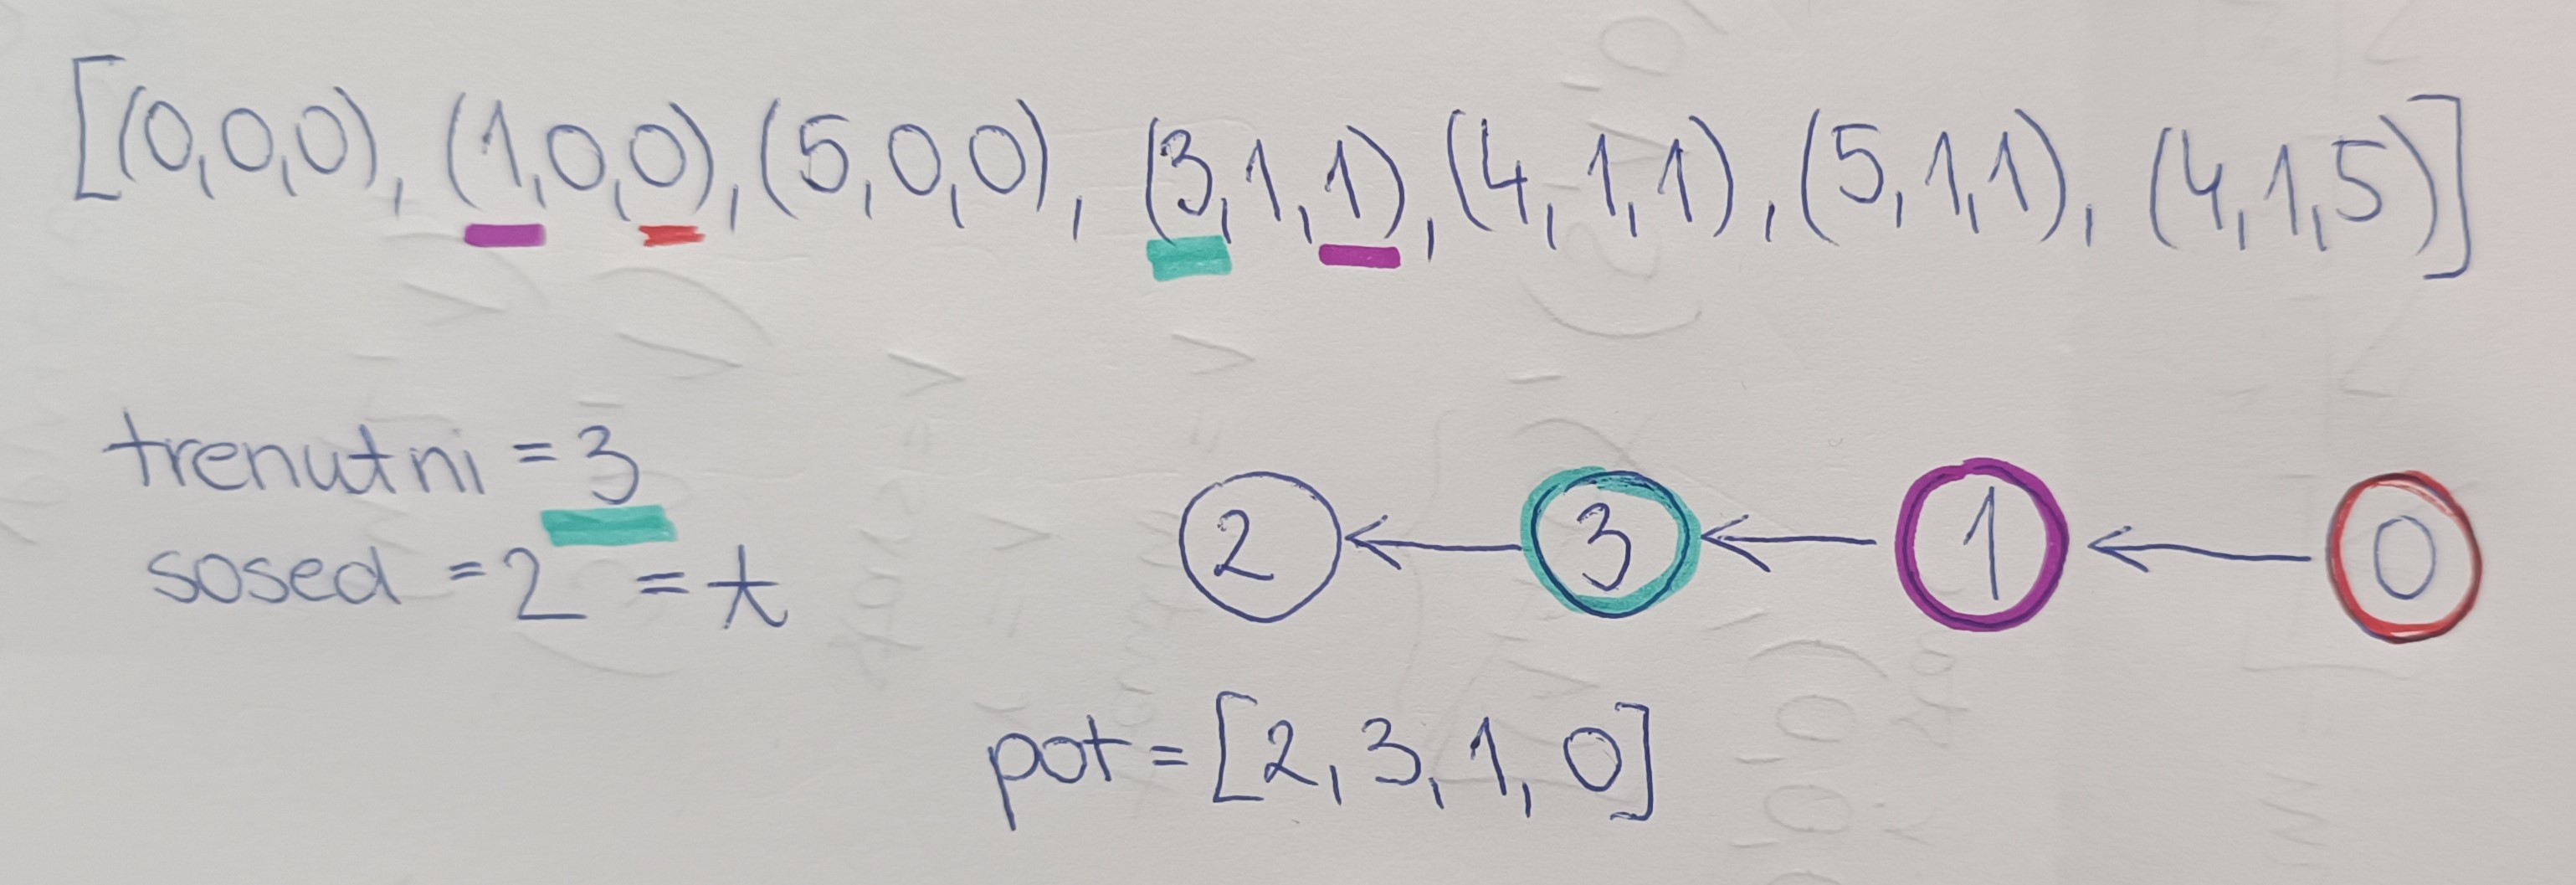 [(0,0,0), (1,0,0), (5,0,0), (3,1,1), (4,1,1), (5,1,1), (4,1,5)]
trenutni = 3
sosed = 2 = t
2 ← 3 ← 1 ← 0
pot = [2, 3, 1, 0]